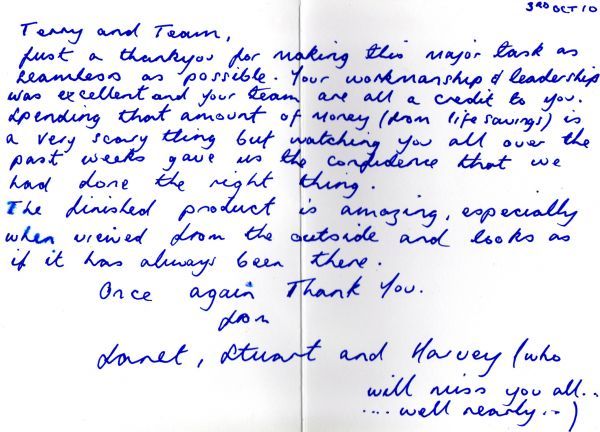 3RD OCT 10
Terry and Team,
Just a thankyou for making this major task as
seamless as possible. Your workmanship & leadership
was excellent and your team are all a credit to you.
Spending that amount of money (from life savings) is
a very scary thing but watching you all over the
past weeks gave us the confidence that we
had done the right thing.
The finished product is amazing, especially
when viewed from the outside and looks as
if it has always been there.
Once again Thank You.
from
Janet, Stuart and Harvey (who
will miss you all..
.... well nearly..)